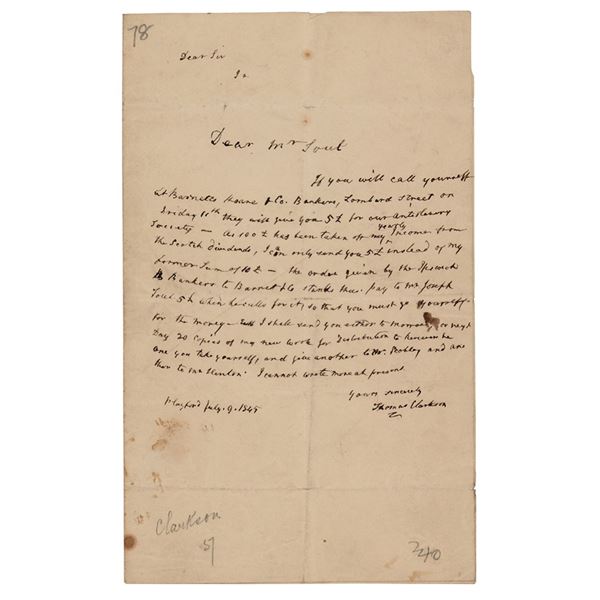 78
Dear Sir
I
Dear Mr Soul
If you will call yourself
at Barnetts Hoare & Co. Bankers, Lombard Street on
Friday 11th they will give you 5£ for our antislavery
Society — As 100£ has been taken off my yearly Income from
the Scotch dividends, I can only send you 5£ instead of my
former Sum of 10£ — the order given by the Ipswich
Bankers to Barnet &c stands thus. pay to Mr Joseph
Soul 5£ when he calls for it, so that you must go yourself
for the money — I shall send you either to morrow, or next
Day 20 Copies of my new work for Distribution to
one you take yourself, and give another to Mr and ano
ther to Mr Hinton. I cannot write more at present
Yours sincerely
Thomas Clarkson
Playford July. 9. 1845
Clarkson
5/